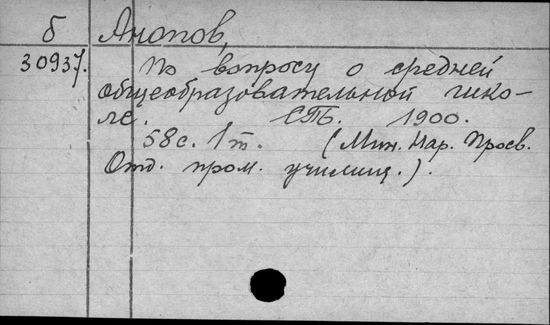 б Анопов,
30937. По вопросу о средней
общеобразовательной шко-
ле. СПБ. 1900.
58с. 1т. (Мин. Нар. Просв.
Отд. пром. училищ.).